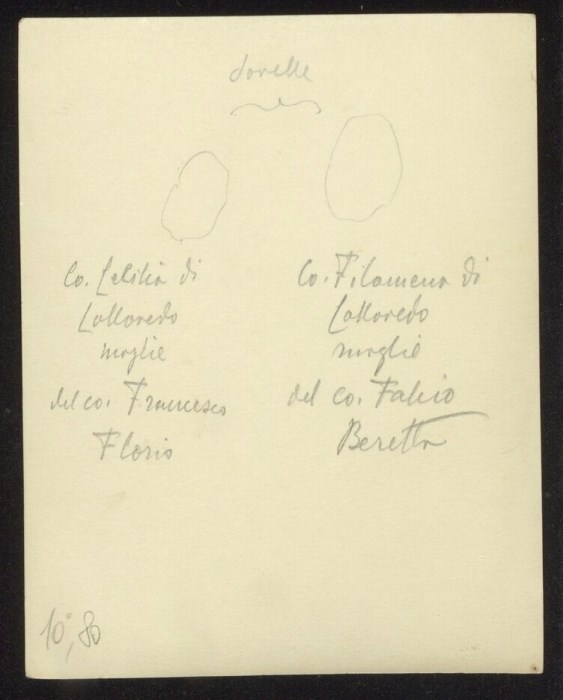 Sorelle
Co. Letitia di
Colloredo
moglie
del co. Francesco
Florio
Co. Filomena di
Colloredo
moglie
del co. Fabio
Beretta
10,80